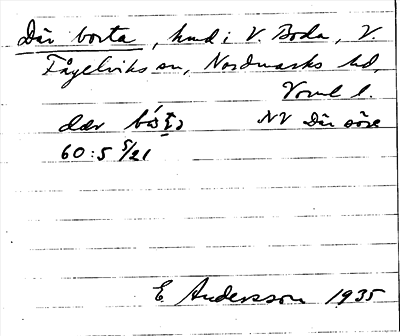 Där borta, hmd i V. Boda, V.
Fågelviks sn, Nordmarks hd,
Verml l.
dær NV Där söre
60:5 5/21
E Andersson 1935